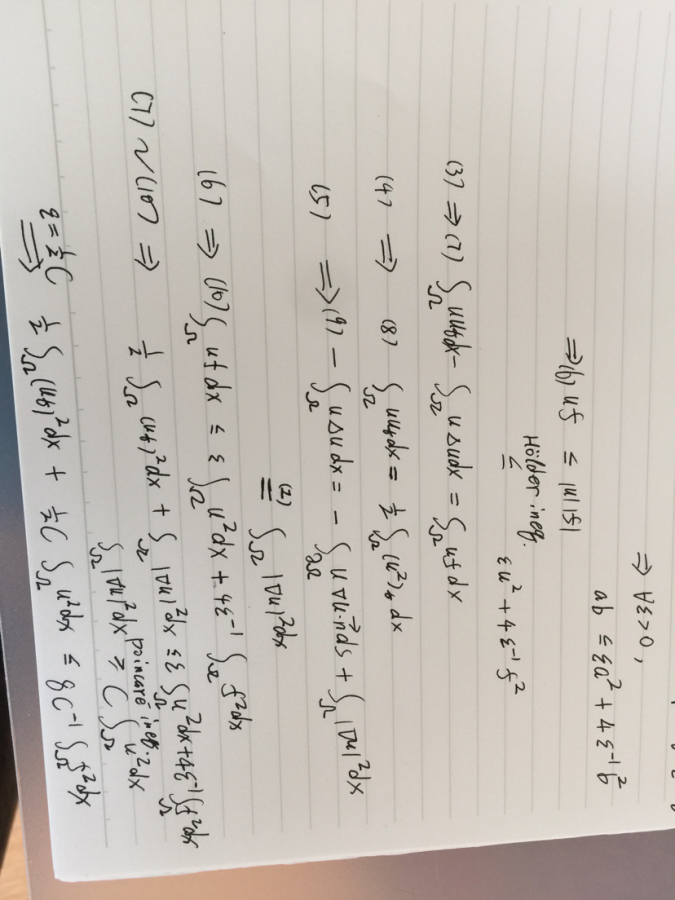 ⇒ ∀ε>0,
ab ≤ εa² + 4ε⁻¹b²
⇒(6) uf ≤ |u||f|
Hölder ineq.
≤ εu² + 4ε⁻¹f²
(3) ⇒ (7) ∫_Ω uu_t dx - ∫_Ω uΔu dx = ∫_Ω uf dx
(4) ⇒ (8) ∫_Ω uu_t dx = ½ ∫_Ω (u²)_t dx
(5) ⇒ (9) - ∫_Ω uΔu dx = - ∫_∂Ω u∇u·n⃗ ds + ∫_Ω |∇u|² dx
(2) = ∫_Ω |∇u|² dx
(6) ⇒ (10) ∫_Ω uf dx ≤ ε ∫_Ω u² dx + 4ε⁻¹ ∫_Ω f² dx
(7) ~ (10) ⇒ ½ ∫_Ω (u_t)² dx + ∫_Ω |∇u|² dx ≤ ε ∫_Ω u² dx + 4ε⁻¹ ∫_Ω f² dx
poincaré ineq.
∫_Ω |∇u|² dx ≥ C ∫_Ω u² dx
ε = ½C ⇒ ½ ∫_Ω (u_t)² dx + ½C ∫_Ω u² dx ≤ 8C⁻¹ ∫_Ω f² dx